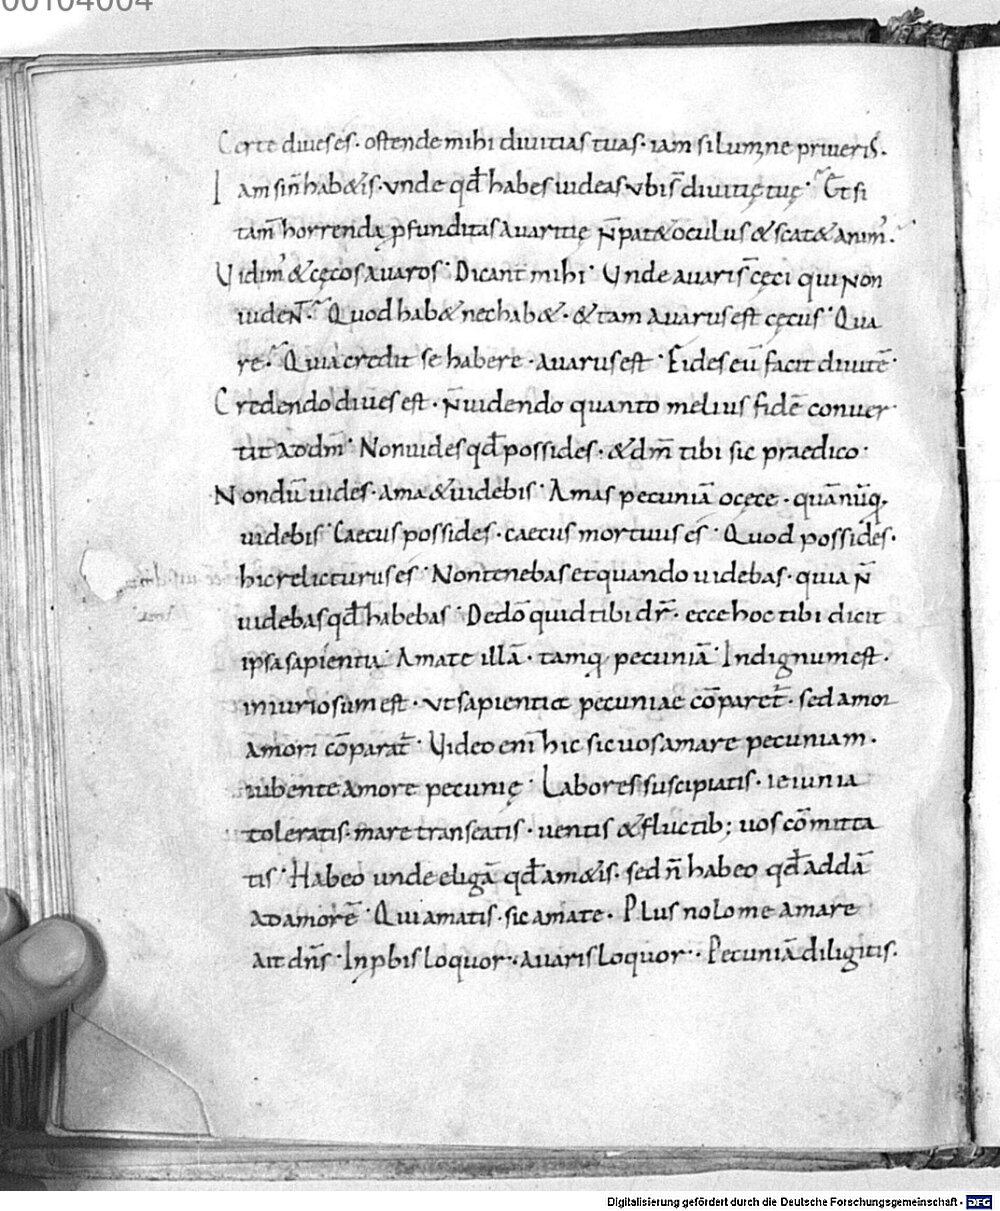 00104004
Certe diues es · ostende mihi diuitias tuas · iam si lumine priueris ·
Iam si n̄ habetis · unde qđ habes uideas · ubi s̄ diuitię tuę · Et si
tam̄ horrenda p̱funditas auaritię n̄ pat& oculus & scat& anim᾽ ·
Vidim᾽ & cęcos auaros · Dicant mihi · Vnde auari s̄ cęci qui non
uident̄ · Quod hab& nec hab& · & tam auarus est cęcus · Qua
re · Quia credit se habere · auarus est · Fides eū facit diuitē ·
Credendo diues est · n̄ uidendo quanto melius fidē conuer
tit ad dm̄ · Non uides qđ possides · & dm̄ tibi sic praedico ·
Nondū uides · ama & uidebis · Amas pecuniā o cęce · quā nūq,
uidebis · Caecus possides · caecus moriturus es · Quod possides ·
hic relicturus es · Non tenebas et quando uidebas · quia n̄
uidebas qđ habebas · De dō quid tibi dr̄ · ecce hoc tibi dicit
ipsa sapientia · Amate illā · tamq, pecuniā · Indignum est ·
iniuriosum est · ut sapientiae pecuniae cōparet̄ · sed amor
amori cōparat̄ · Video eni̅ hic sic uos amare pecuniam ·
iubente amore pecunię · Labores suscipiatis · ieiunia
toleratis · mare transeatis · uentis & fluctib; uos cōmitta
tis · Habeo unde eligā qđ am&is · sed n̄ habeo qđ addā
ad amorē · Qui amatis · sic amate · Plus nolo me amare
ait dn̄s · Inp̱bis loquor · auaris loquor · Pecuniā diligitis ·
Digitalisierung gefördert durch die Deutsche Forschungsgemeinschaft - DFG